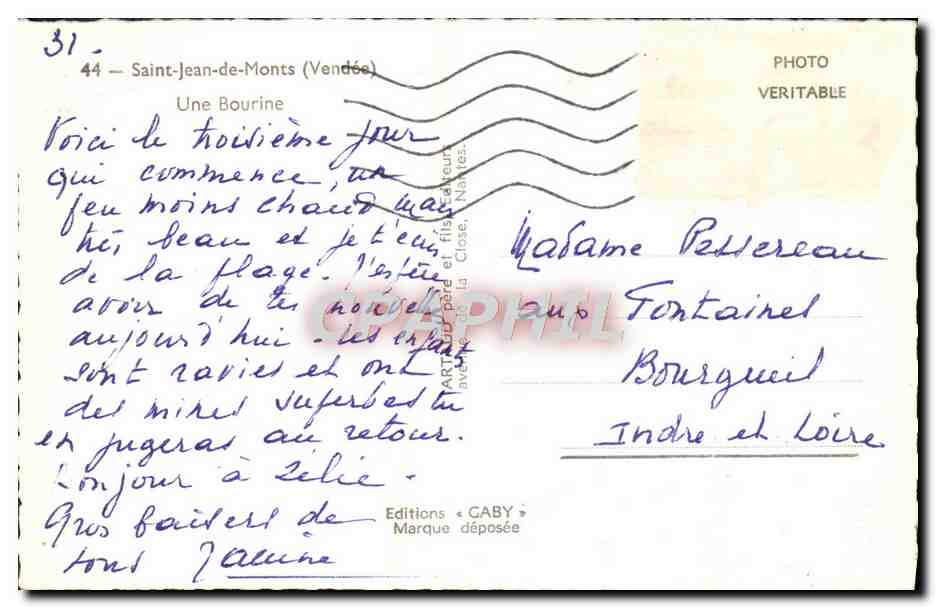 31.
44 — Saint-Jean-de-Monts (Vendée)
Une Bourine
Voici le troisième jour
qui commence, un
peu moins chaud mais
très beau et je t'écris
de la plage. J'espère
avoir de tes nouvelles
aujourd'hui. Les enfants
sont ravies et ont
des mines superbes tu
en jugeras au retour.
Bonjour à Zélie.
Gros baisers de
tous Janine
ARTAUD père et fils, Editeurs
avenue de la Close, Nantes.
Editions « GABY »
Marque déposée
PHOTO
VERITABLE
Madame Pessereau
aux Fontaines
Bourgueil
Indre et Loire
CPAPHIL